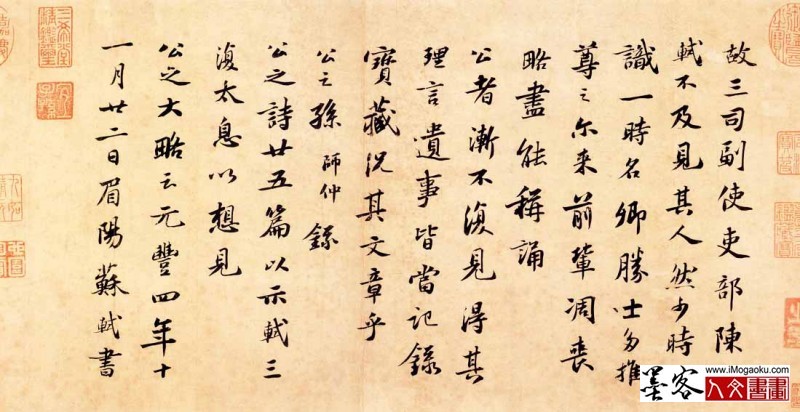 故三司副使吏部陳
軾不及見其人然少時
識一時名卿勝士多推
尊之尔来前輩凋喪
略盡能稱誦
公者漸不復見得其
理言遺事皆當記錄
寶藏況其文章乎
公之孫師仲錄
公之詩廿五篇以示軾三
復太息以想見
公之大略云元豐四年十
一月廿二日眉陽蘇軾書
三希堂精鑒璽
宜子孫
墨客
www.iMogaoku.com
人文書畫